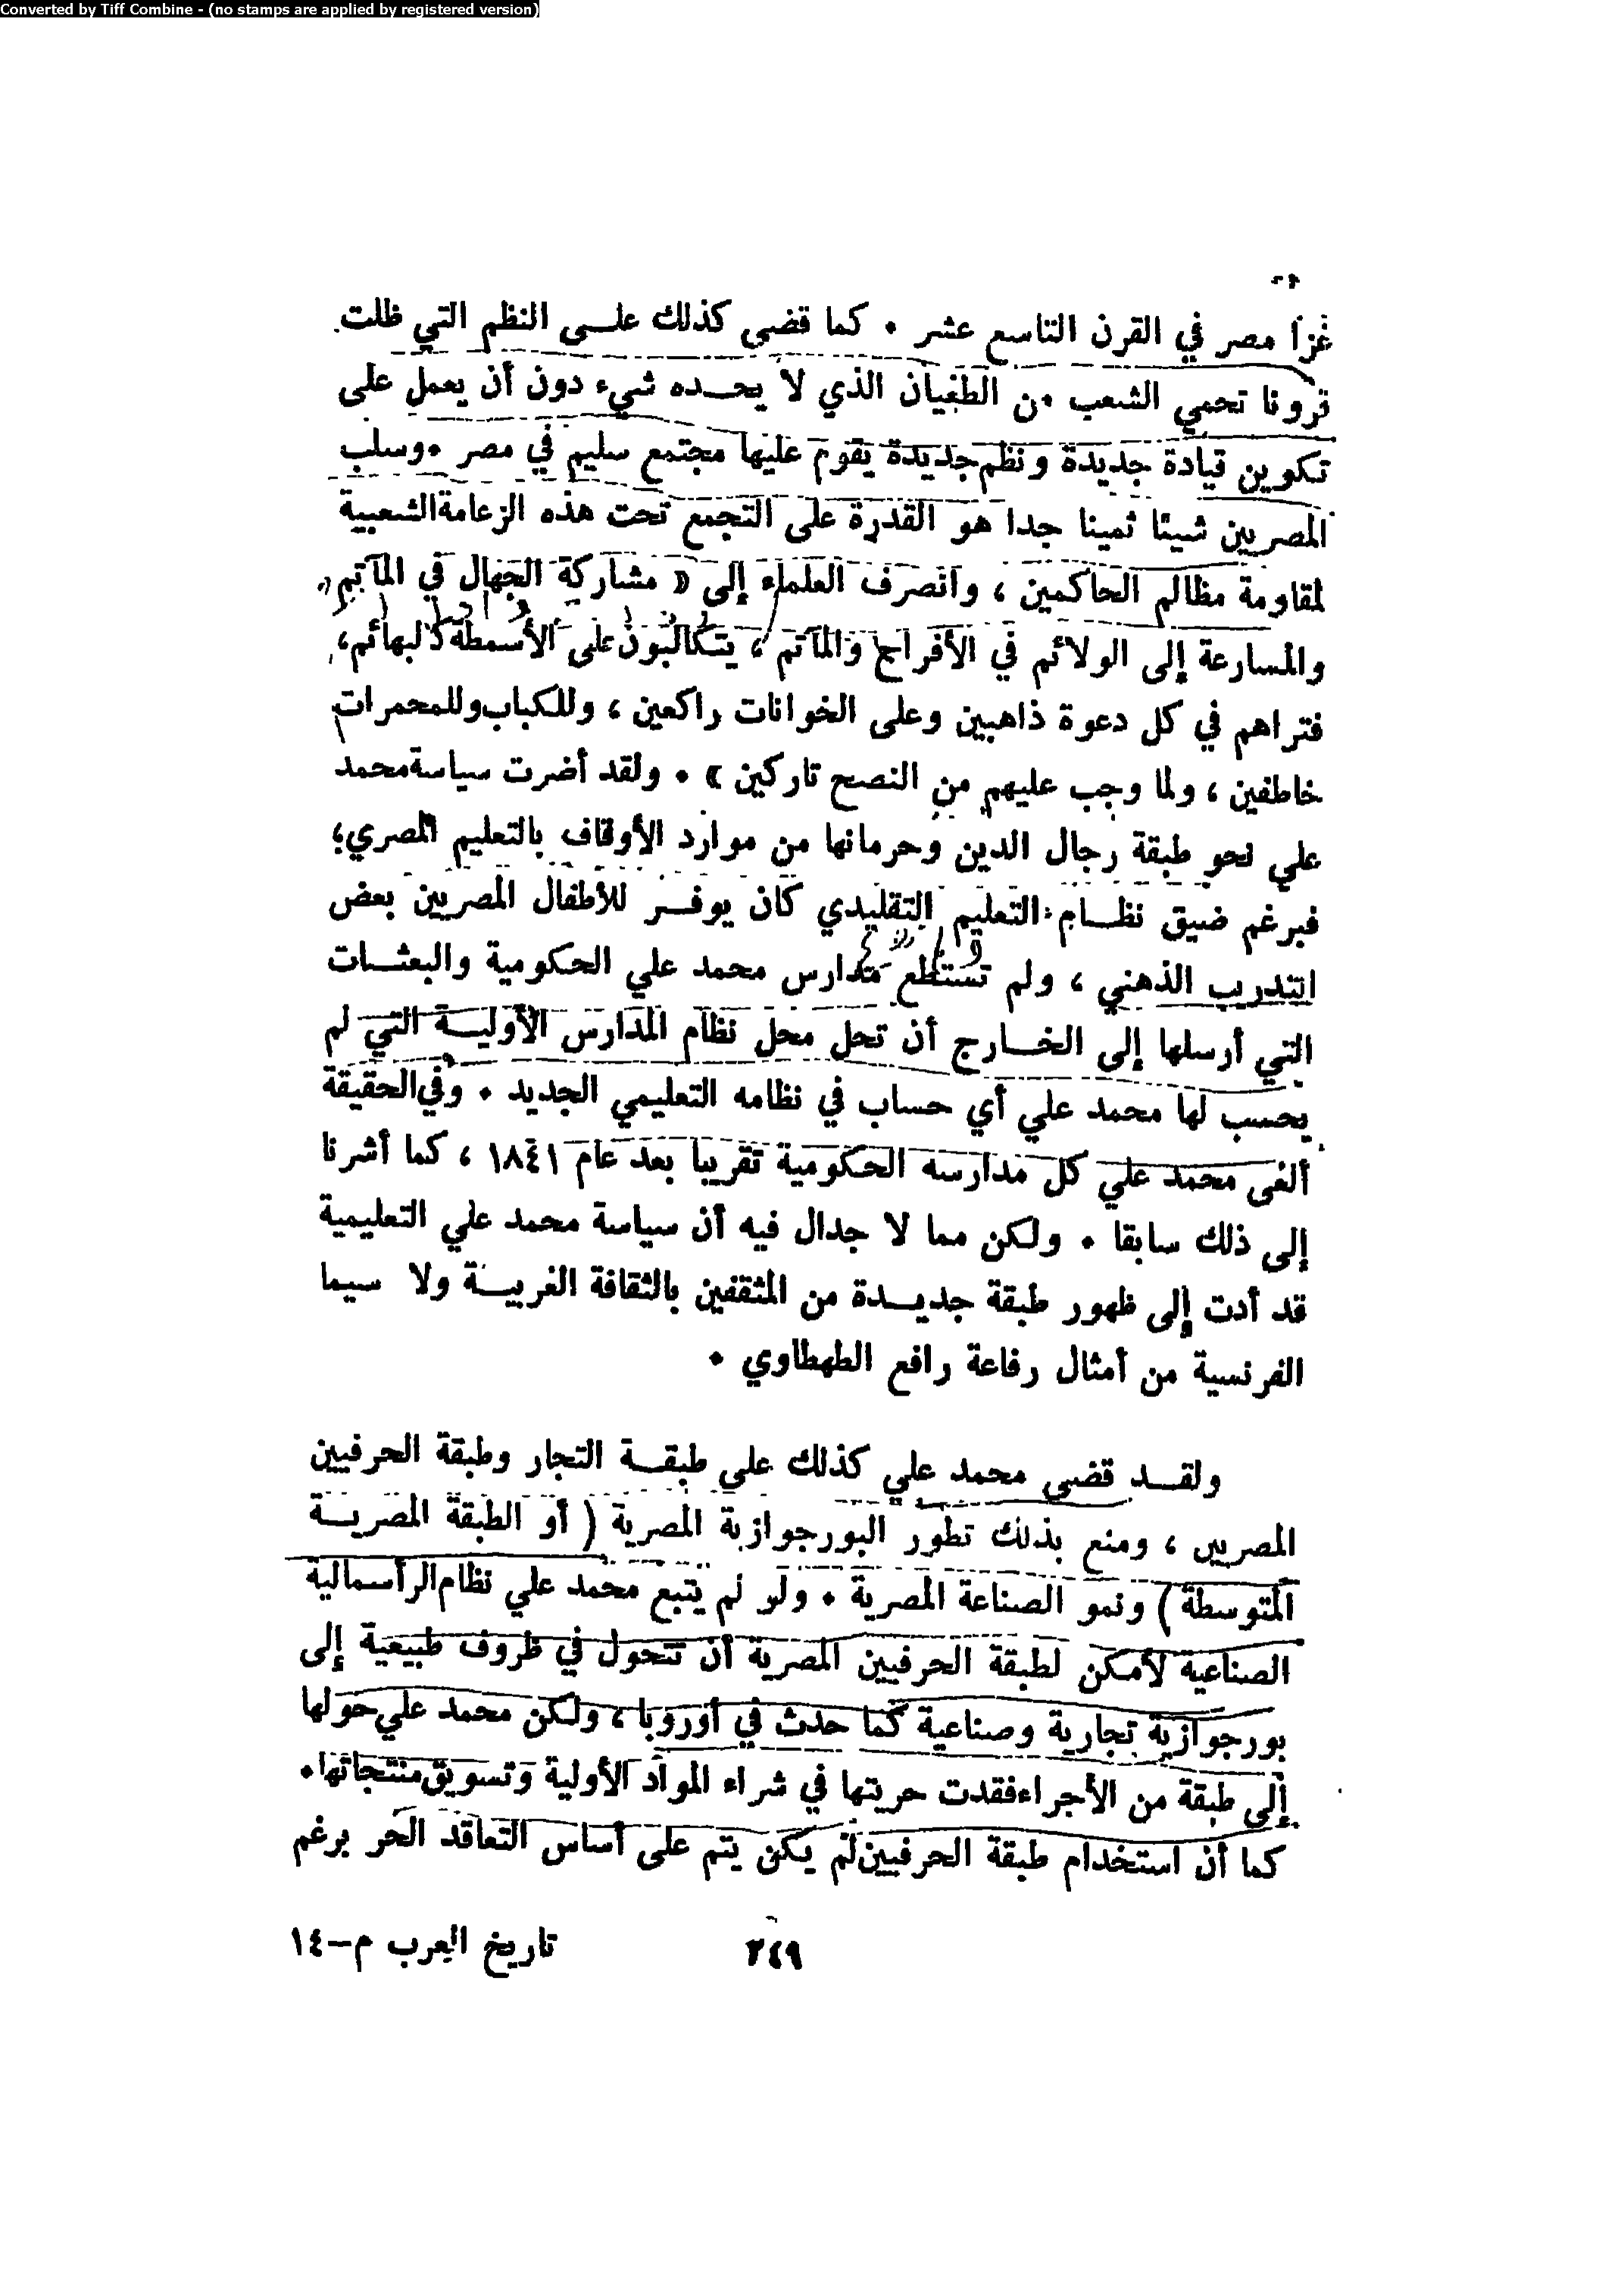 Converted by Tiff Combine - (no stamps are applied by registered version)
غزا مصر في القرن التاسع عشر . كما قضى كذلك علــى النظم التي ظلت
قرونا تحمي الشعب من الطغيان الذي لا يحــده شيء دون أن يعمل على
تكوين قيادة جديدة ونظم جديدة يقوم عليها مجتمع سليم في مصر . وسلب
المصريين شيئا ثمينا جدا هو القدرة على التجمع تحت هذه الزعامة الشعبية
لمقاومة مظالم الحاكمين ، وانصرف العلماء إلى « مشاركة الجهال في المآتم
والمسارعة إلى الولائم في الأفراح والمآتم ، يتكالبون على الأسمطة كالبهائم ،
فتراهم في كل دعوة ذاهبين وعلى الخوانات راكعين ، وللكباب وللمحمرات
خاطفين ، ولما وجب عليهم من النصح تاركين » . ولقد أضرت سياسة محمد
علي نحو طبقة رجال الدين وحرمانها من موارد الأوقاف بالتعليم المصري؛
فبرغم ضيق نظــام التعليم التقليدي كان يوفــر للأطفال المصريين بعض
التدريب الذهني ، ولم تستطع مدارس محمد علي الحكومية والبعثــات
التي أرسلها إلى الخــارج أن تحل محل نظام المدارس الأوليــة التي لم
يحسب لها محمد علي أي حساب في نظامه التعليمي الجديد . وفي الحقيقة
ألغى محمد علي كل مدارسه الحكومية تقريبا بعد عام ١٨٤١ ، كما أشرنا
إلى ذلك سابقا . ولكن مما لا جدال فيه أن سياسة محمد علي التعليمية
قد أدت إلى ظهور طبقة جديــدة من المثقفين بالثقافة الغربيــة ولا سيما
الفرنسية من أمثال رفاعة رافع الطهطاوي .
ولقــد قضى محمد علي كذلك على طبقــة التجار وطبقة الحرفيين
المصريين ، ومنع بذلك تطور البورجوازية المصرية ( أو الطبقة المصريــة
المتوسطة ) ونمو الصناعة المصرية . ولو لم يتبع محمد علي نظام الرأسمالية
الصناعية لأمكن لطبقة الحرفيين المصرية أن تتحول في ظروف طبيعية إلى
بورجوازية تجارية وصناعية كما حدث في أوروبا ، ولكن محمد علي حولها
إلى طبقة من الأجراء ففقدت حريتها في شراء المواد الأولية وتسويق منتجاتها .
كما أن استخدام طبقة الحرفيين لم يكن يتم على أساس التعاقد الحر برغم
٢٤٩
تاريخ العرب م-١٤